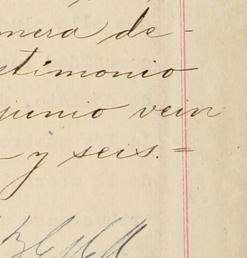 mera de-
stimonio
junio vein
y seis.=